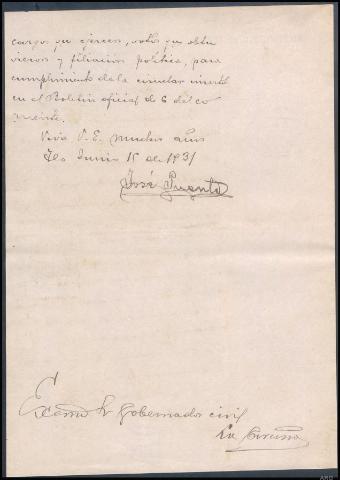 cargo que ejercen, votos que obtu
vieron y filiación política, para
cumplimiento de la circular inserta
en el Boletin oficial de 6 del co
rriente.
Viva V.E. muchos años
Junio 15 de 1931
José Puente
Excmo Sr Gobernador civil
La Coruña